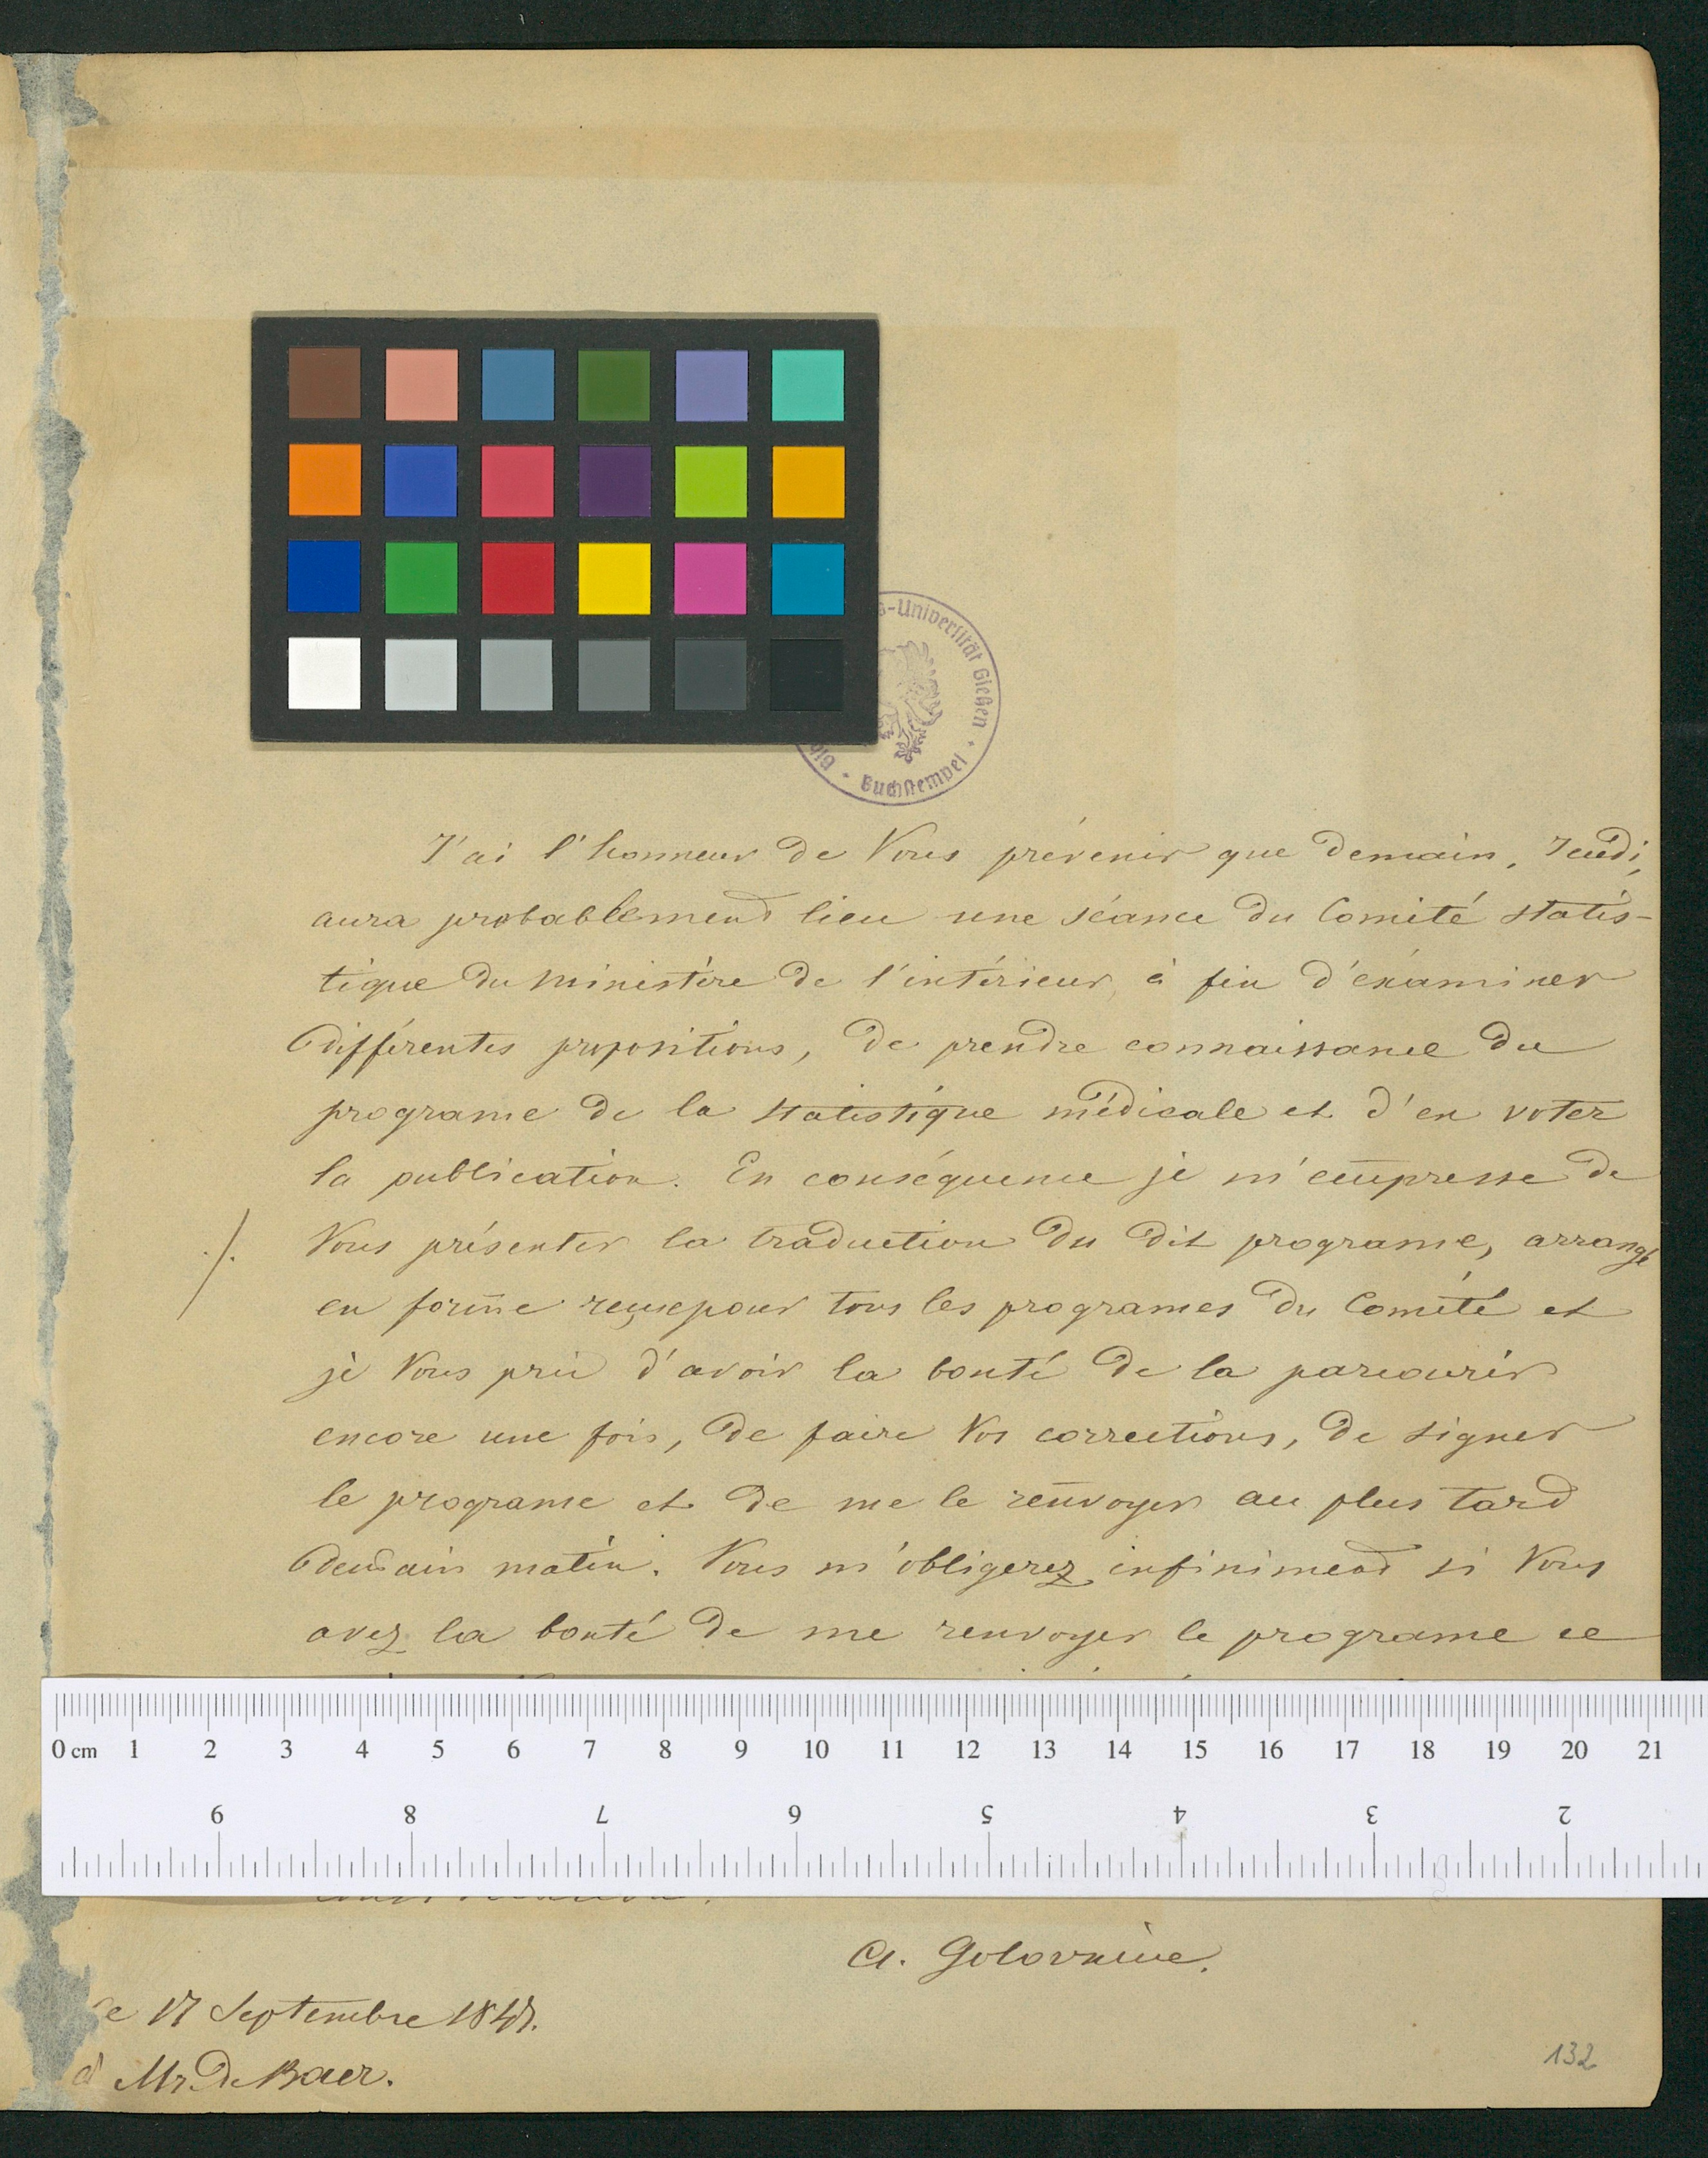 -Universität Gießen
Buchstempel
J'ai l'honneur de Vous prévenir que demain, Jeudi,
aura probablement lieu une séance du Comité statis-
tique du ministère de l'intérieur, à fin d'éxaminer
différentes propositions, de prendre connaissance du
programe de la statistique médicale et d'en voter
la publication. En conséquence je m'empresse de
Vous présenter la traduction du dit programe, arrangé
en forme reçue pour tous les programes du Comité et
je Vous prie d'avoir la bonté de la parcourir
encore une fois, de faire Vos corrections, de signer
le programe et de me le renvoyer au plus tard
demain matin. Vous m'obligerez infiniment si Vous
avez la bonté de me renvoyer le programe ce
0 cm 1 2 3 4 5 6 7 8 9 10 11 12 13 14 15 16 17 18 19 20 21
9 8 7 6 5 4 3 2
A. Golovnine.
le 17 Septembre 1847.
à Mr. de Baer.
132